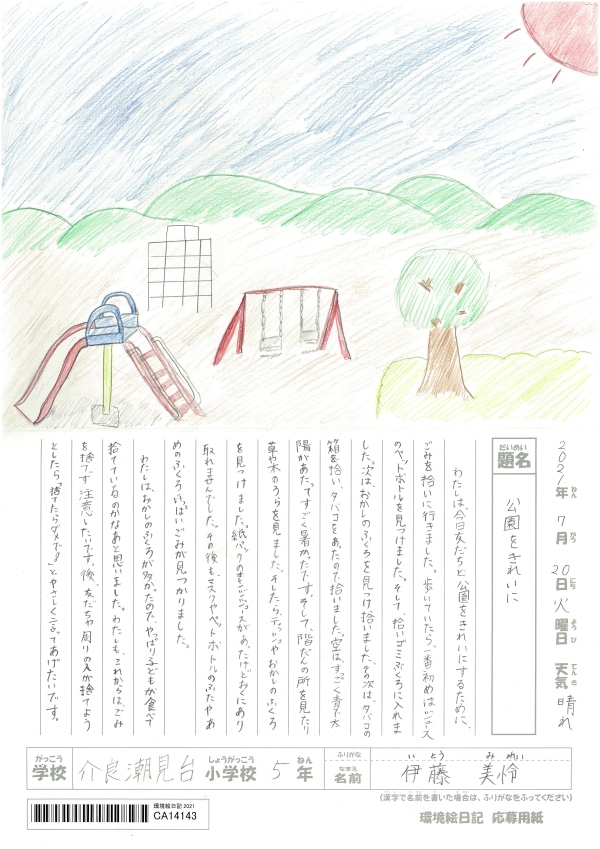 2021年ねん 7月がつ 20日にち 火曜日ようび 天気てんき 晴れ
だいめい
題名 公園をきれいに
わたしは今日友だちと公園をきれいにするために、
ごみを拾いに行きました。歩いていたら、一番初めはジュース
のペットボトルを見つけました。そして、拾いゴミぶくろに入れま
した。次は、おかしのふくろを見つけ拾いました。その次は、タバコの
箱を拾い、タバコもあたので拾いました。空は、すっごく青で太
陽があたってすごく暑かったです。そして、階だんの所を見たり
草や木のうらを見ました。そしたら、ティッシュやおかしのふくろ
を見つけました。紙パックのオレンジジュースがあったけどおくにあり
取れませんでした。その後も、マスクやペットボトルのふたやあ
めのふくろ、いっぱいごみが見つかりました。
わたしは、おかしのふくろが多かったので、やっぱり子どもが食べて
捨てているのかなあと思いました。わたしも、これからは、ごみ
を捨てず注意したいです。後、友だちや周りの人が捨てよう
としたら、「捨てたらダメで。」とやさしく言ってあげたいです。
がっこう しょうがっこう ねん ふりがな い とう み れい
学校 介良潮見台 小学校 5 年 なまえ 名前 伊藤 美怜
(漢字で名前を書いた場合は、ふりがなをふってください)
環境絵日記 2021
CA14143
環境絵日記 応募用紙